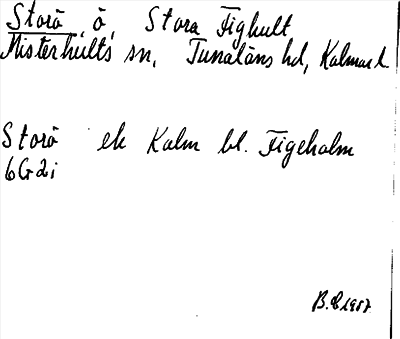 Storö, ö, Stora Fighult
Misterhults sn, Tunaläns hd, Kalmar l.
Storö ek Kalm bl. Figeholm
6G2i
1957